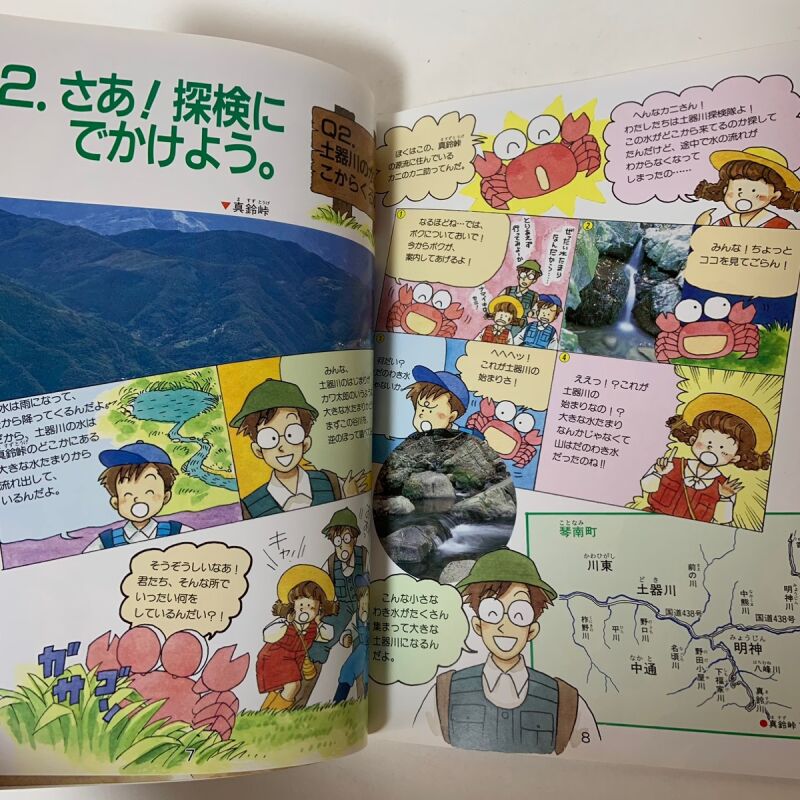 2. さあ！探検に
でかけよう。
Q2.
土器川の
こからく
▼真鈴峠
ま すず とうげ
水は雨になって、
から降ってくるんだよ。
から、土器川の水は
真鈴峠のどこかにある
大きな水たまりから
流れ出して、
いるんだよ。
みんな、
土器川のはじまりが
カワ太郎のいうような
大きな水たまりか
まずこの谷川を
そうぞうしいなあ！
君たち、そんな所で
いったい何を
しているんだい？！
キャ
ガサ
ゴソ
7
ぼくはこの、真鈴峠
の源流に住んでいる
カニのカニ助ってんだ。
へんなカニさん！
わたしたちは土器川探検隊よ！
この水がどこから来てるのか探して
たんだけど、途中で水の流れが
わからなくなって
しまったの……
1
なるほどね…では、
ボクについておいで！
今からボクが、
案内してあげるよ！
ぜったい水たまり
なんだから…
とりあえず
行ってみるか
2
みんな！ちょっと
ココを見てごらん！
3
何だい？
ただのわき水
じゃないか
ヘヘヘッ！
これが土器川の
始まりさ！
4
ええっ！？これが
土器川の
始まりなの！？
大きな水たまり
なんかじゃなくて
山はだのわき水
だったのね!!
こんな小さな
わき水がたくさん
集まって大きな
土器川になるん
だよ。
ことなみ
琴南町
かわひがし
川東
ど き
土器川
前の川
中熊川
明神川
国道438号
国道438号
柞野川
平川
野口川
なか と
中通
名頃川
野田小屋川
みょうじん
明神
八峰川
下福家川
真鈴川
ま すず とうげ
●真鈴峠
8